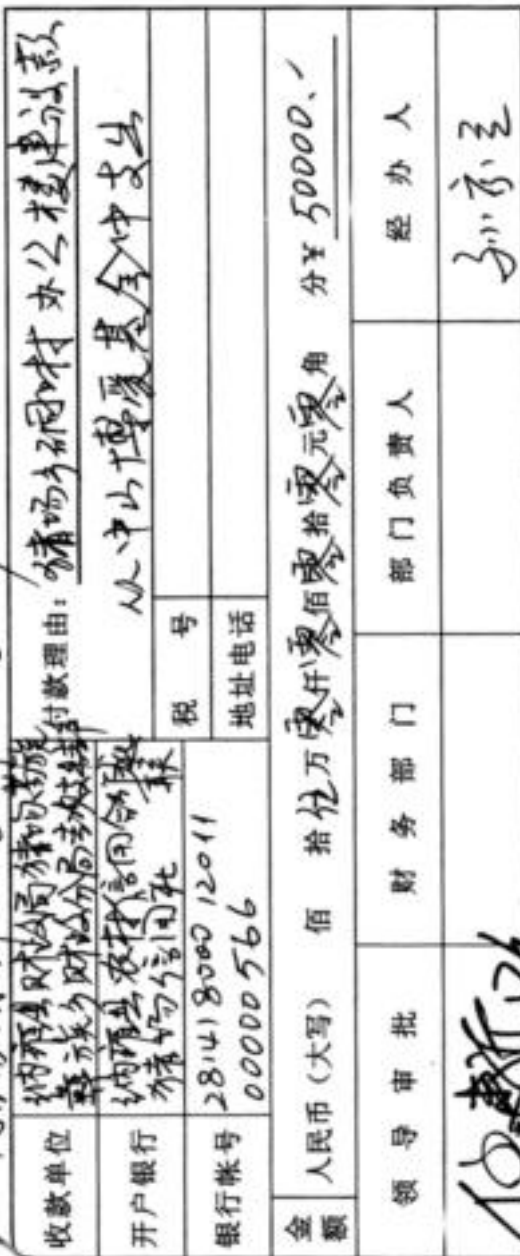 收款单位 纳雍县财政局猪场苗族
彝族乡财政分局
付款理由：猪场乡硐村办公楼建设款
从中山博爱基金中支出
开户银行 纳雍县农村信用
猪场信用社
税 号
银行帐号 2814180001 2011
00000566
地址电话
金额 人民币（大写） 佰 拾伍万零仟零佰零拾零元零角 分¥ 50000.
领 导 审 批 财 务 部 门 部 门 负 责 人 经 办 人